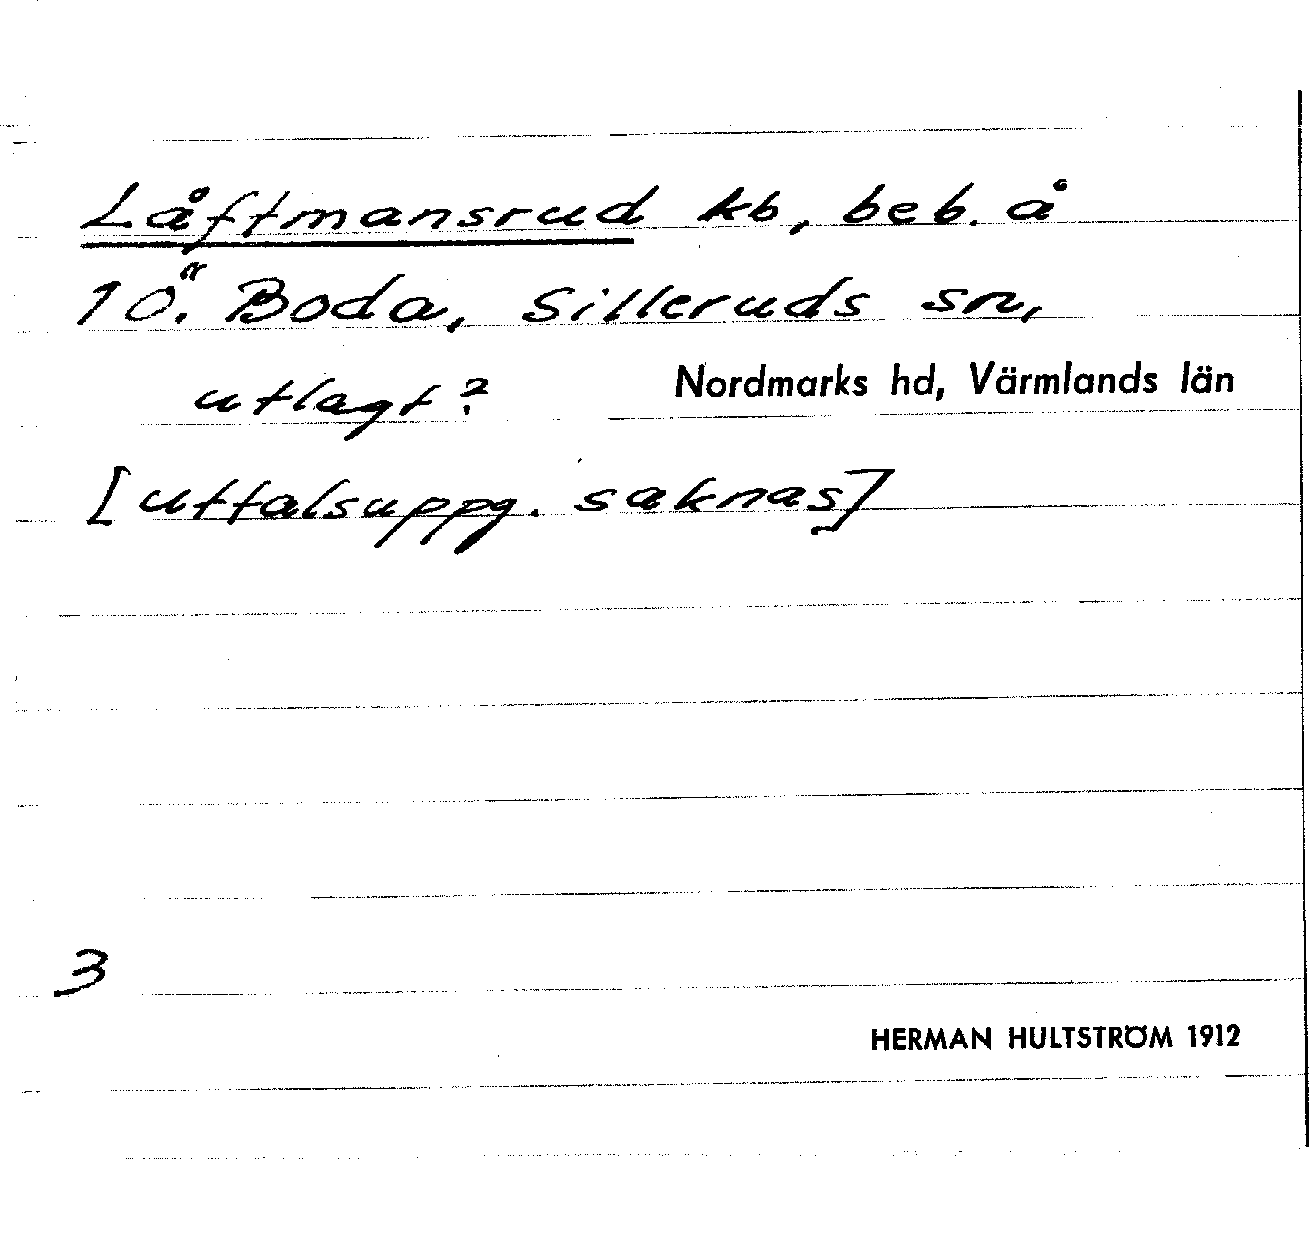 Låftmansrud kb, beb. å
10ª. Boda, Silleruds sn,
utlagt? Nordmarks hd, Värmlands län
[uttalsuppg. saknas]
3
HERMAN HULTSTRÖM 1912